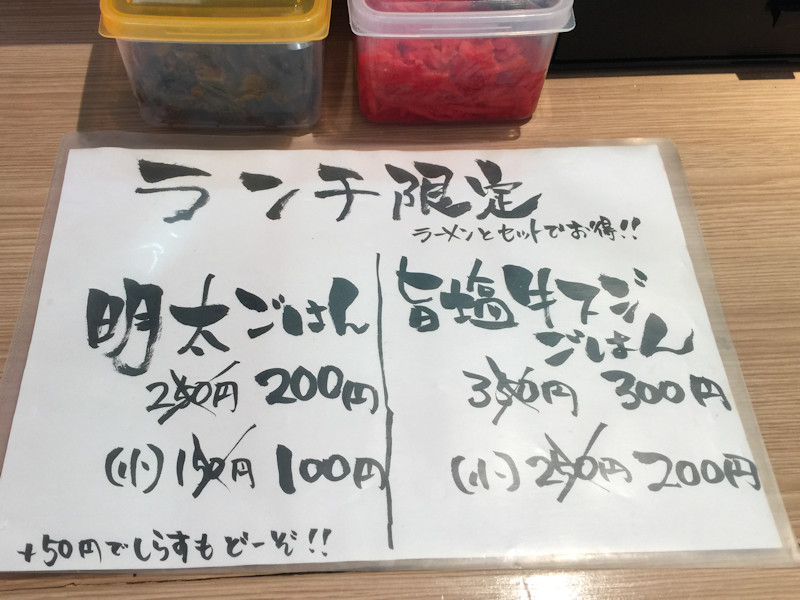 ランチ限定
ラーメンとセットでお得!!
明太ごはん
250円 200円
(小) 150円 100円
+50円でしらすもどーぞ!!
旨塩牛スジ
ごはん
350円 300円
(小) 250円 200円